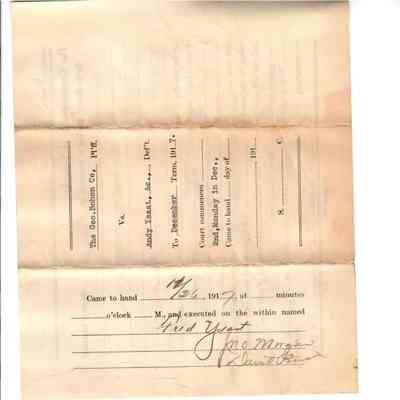 The Geo. Bohon Co, Pl'ff.
Vs.
Andy Yeast, &c., Def't.
To December Term, 1917.
Court commences
2nd, Monday in Dec.,
Came to hand day of
191
S. C.
Came to hand 12/26 1917, at minutes
o'clock M., and executed on the within named
Fred Yeast
J M C Morgan